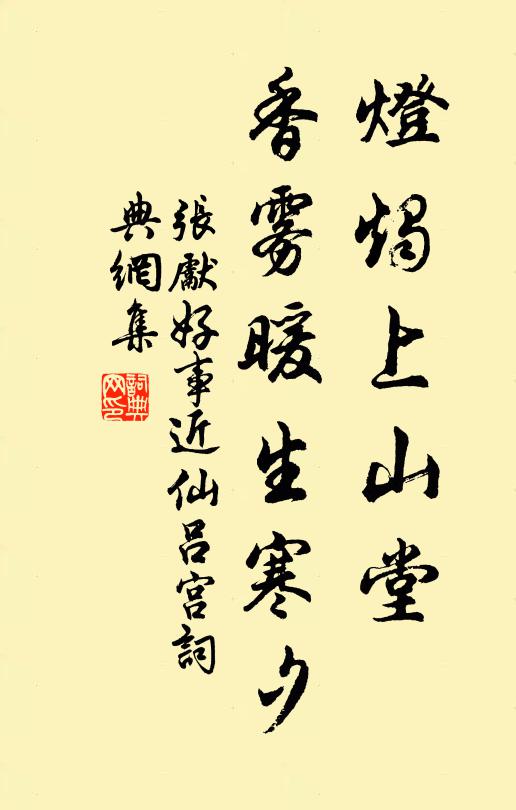 燈燭上山堂
香霧暖生寒夕
張獻好事近仙吕宫詞
典網集
詞典网印